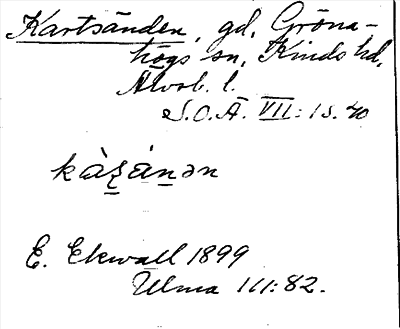 Kartsånden, gd, Gröna-
högs sn, Kinds hd,
Älvsb. l.
S.O.Ä. VII:1 s. 40
E. Ekwall 1899
Ulma 111:82.